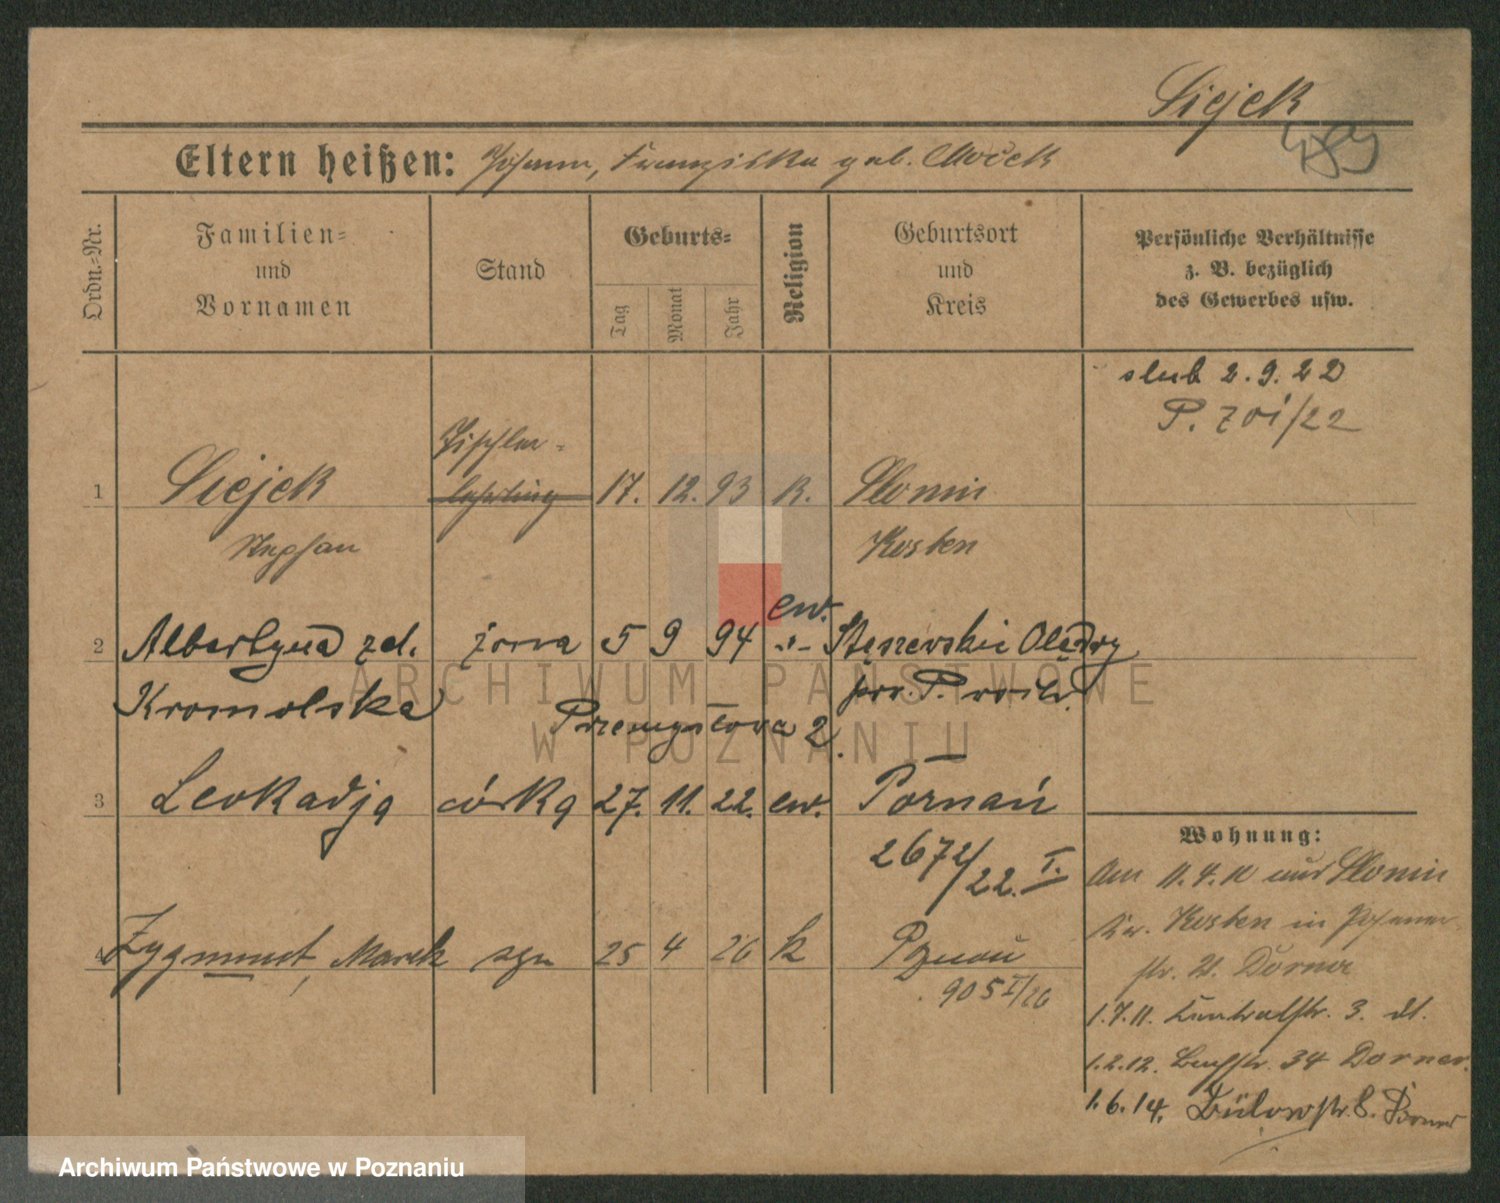 Siejek
Eltern heißen: Johann, Franziska geb. Moček
Ordn.-Nr.
Familien-
und
Vornamen
Stand
Geburts-
Tag
Monat
Jahr
Religion
Geburtsort
und
Kreis
Persönliche Verhältnisse
z. B. bezüglich
des Gewerbes usw.
slub 2.9.22
P. 701/22
Tischler-
1 Siejek lehrling 17. 12. 93 K. Slonin
Stephan Kosten
ew.
2 Albertyna zd. żona 5 9 94 -"- Stęszewskie Olędry
Kromolska pow. P.
Przemysłowa 2.
3 Leokadja córka 27. 11. 22. ew. Poznań
2672/22. I.
4 Zygmunt, Marek syn 25 4 26 k Poznań
905 I/26
Wohnung:
Am 11.4.10 aus Slonin
Kr. Kosten in Posener-
str. 21. Dorner
1.7.11. Centralstr. 3. dt.
1.2.12. 34 Dorner.
1.6.14. Bülowstr. 8. Dorner
ARCHIWUM PAŃSTWOWE
W POZNANIU
Archiwum Państwowe w Poznaniu